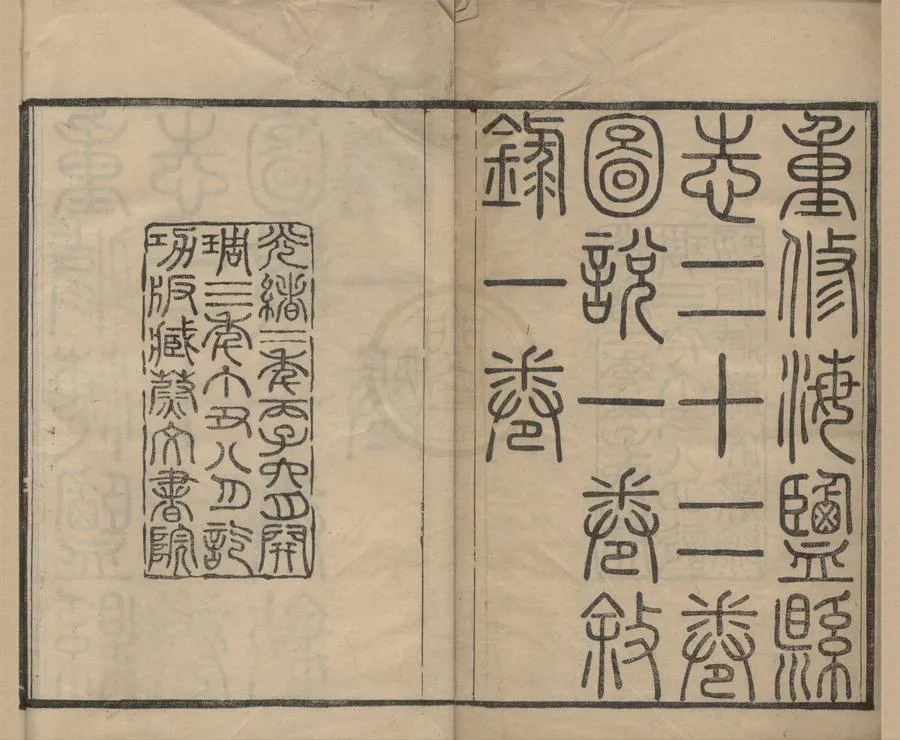 重修海鹽縣
志二十二卷
圖說一卷敘
錄一卷
光緒二年丙子六月開
琱三年丁丑八月訖
功版藏蔚文書院